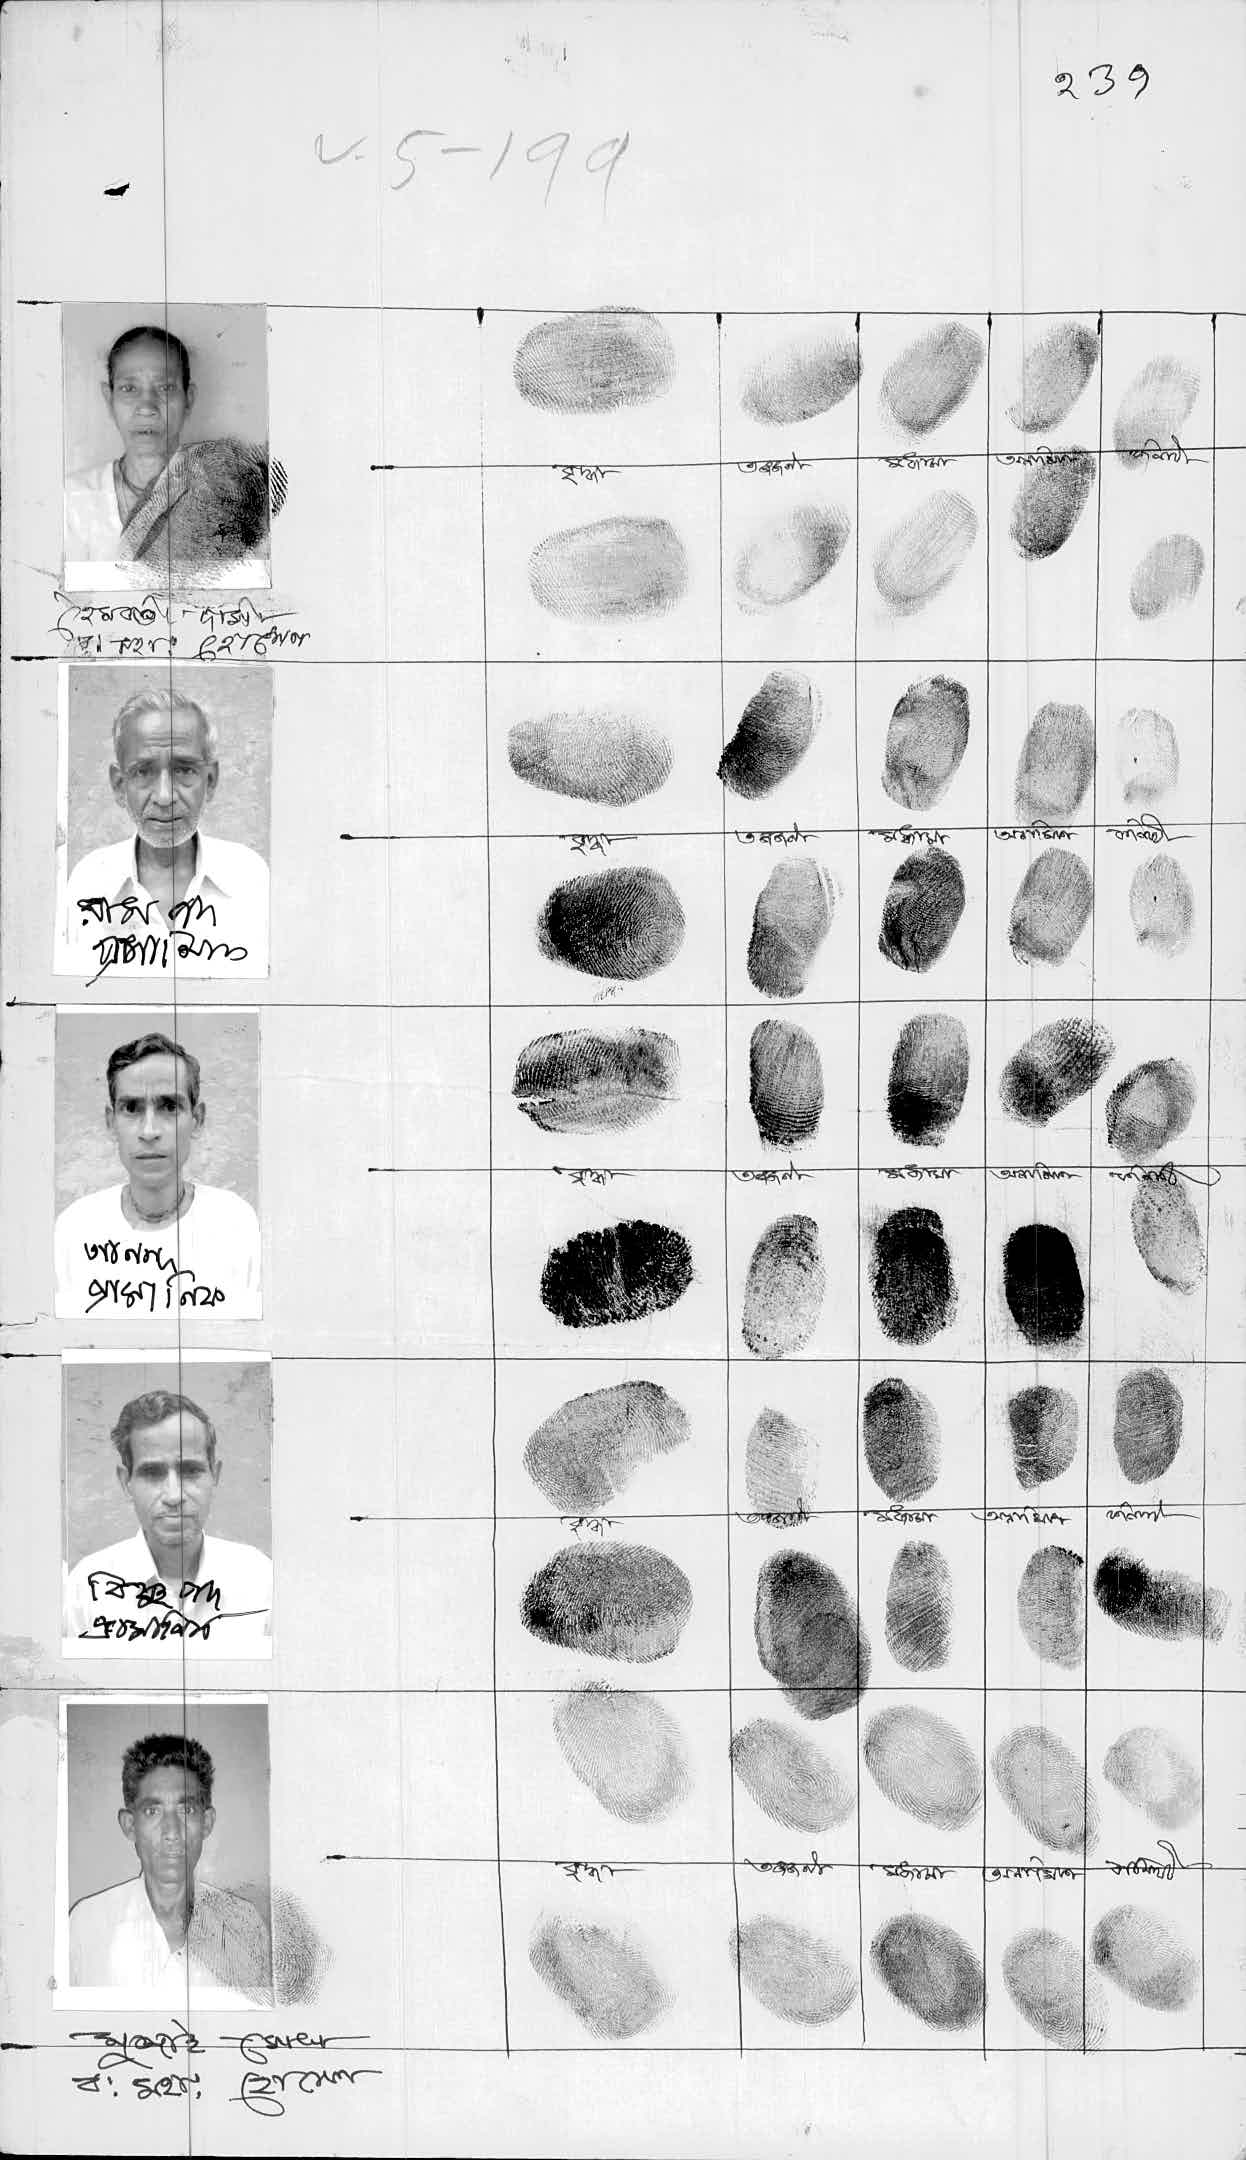 ২৩৭
V. 5-199
হৈমবতী দাসী
ব: কহা: হোসেন
বৃদ্ধা তর্জনী মধ্যমা অনামিকা কনিষ্ঠা
রাম পদ
প্রামানিক
বৃদ্ধা তর্জনী মধ্যমা অনামিকা কনিষ্ঠা
আনন্দ
প্রামানিক
বৃদ্ধা তর্জনী মধ্যমা অনামিকা কনিষ্ঠা
বিষ্ণু পদ
প্রামানিক
বৃদ্ধা তর্জনী মধ্যমা অনামিকা কনিষ্ঠা
বৃদ্ধা তর্জনী মধ্যমা অনামিকা কনিষ্ঠা
ব: মহা: হোসেন